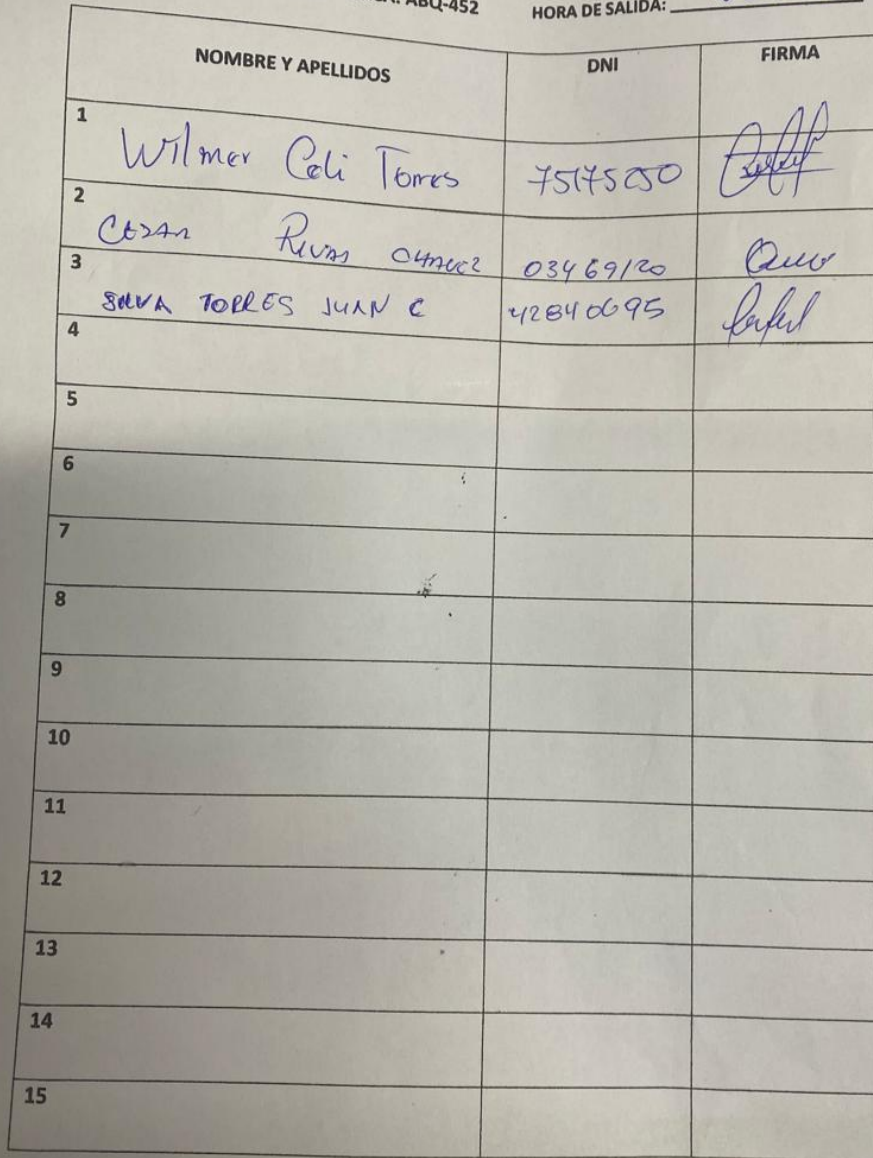 ABQ-452 HORA DE SALIDA:
NOMBRE Y APELLIDOS DNI FIRMA
1 Wilmer Celi Torres 75175250
2 Cesar Rivas Chavez 03469120
3 SILVA TORRES JUAN C 42840695
4
5
6
7
8
9
10
11
12
13
14
15